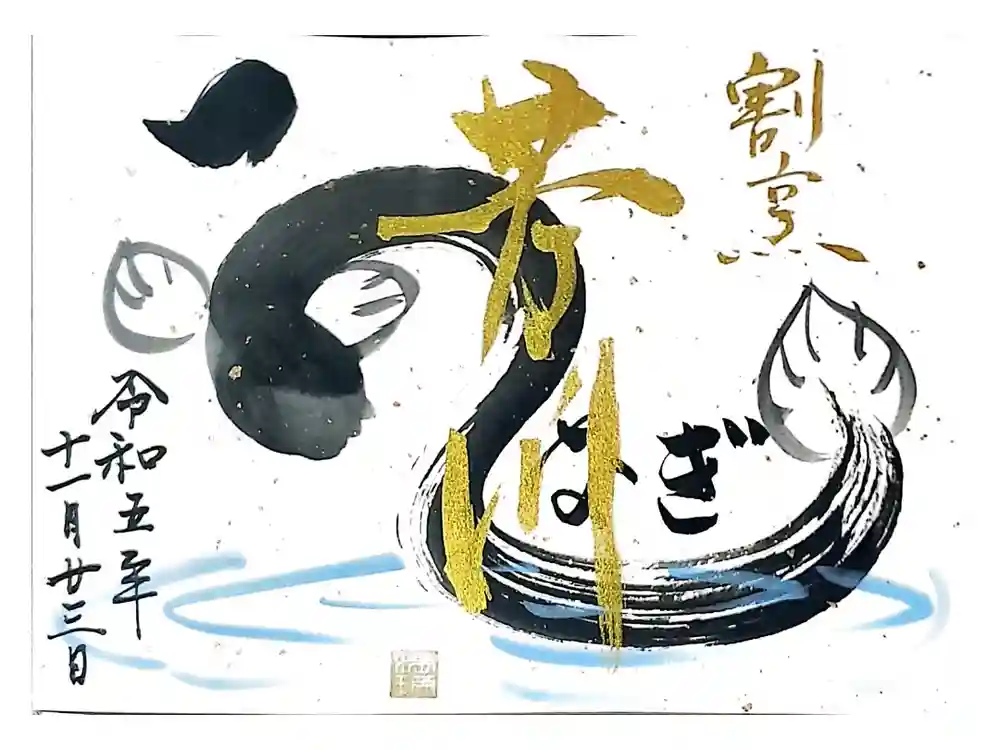 割烹
芳川
うなぎ
令和五年
十一月廿三日